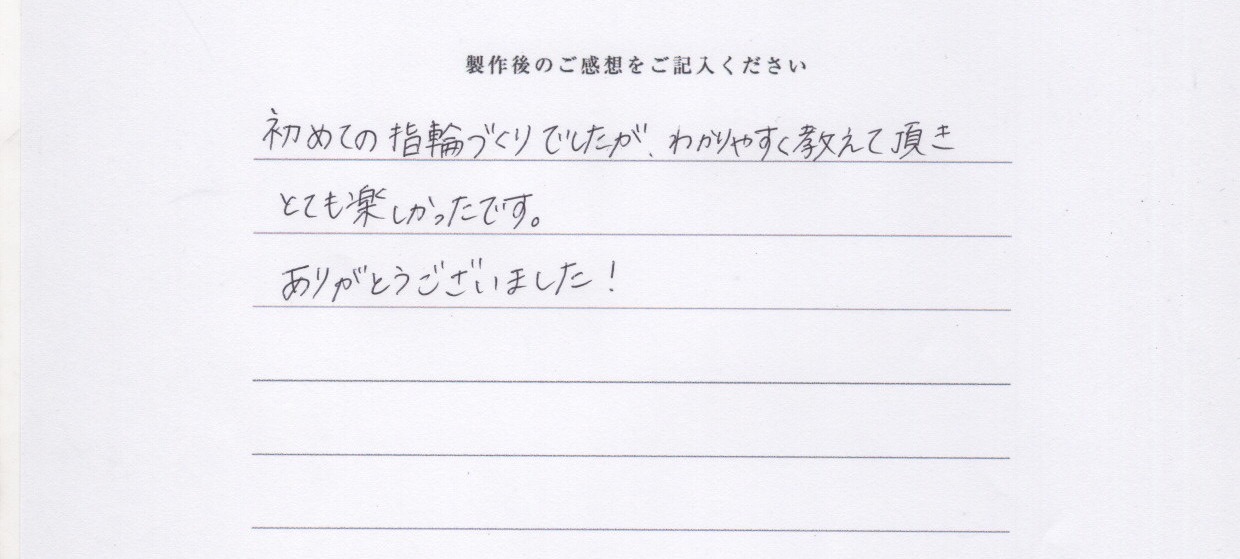 製作後のご感想をご記入ください
初めての指輪づくりでしたが、わかりやすく教えて頂き
とても楽しかったです。
ありがとうございました!